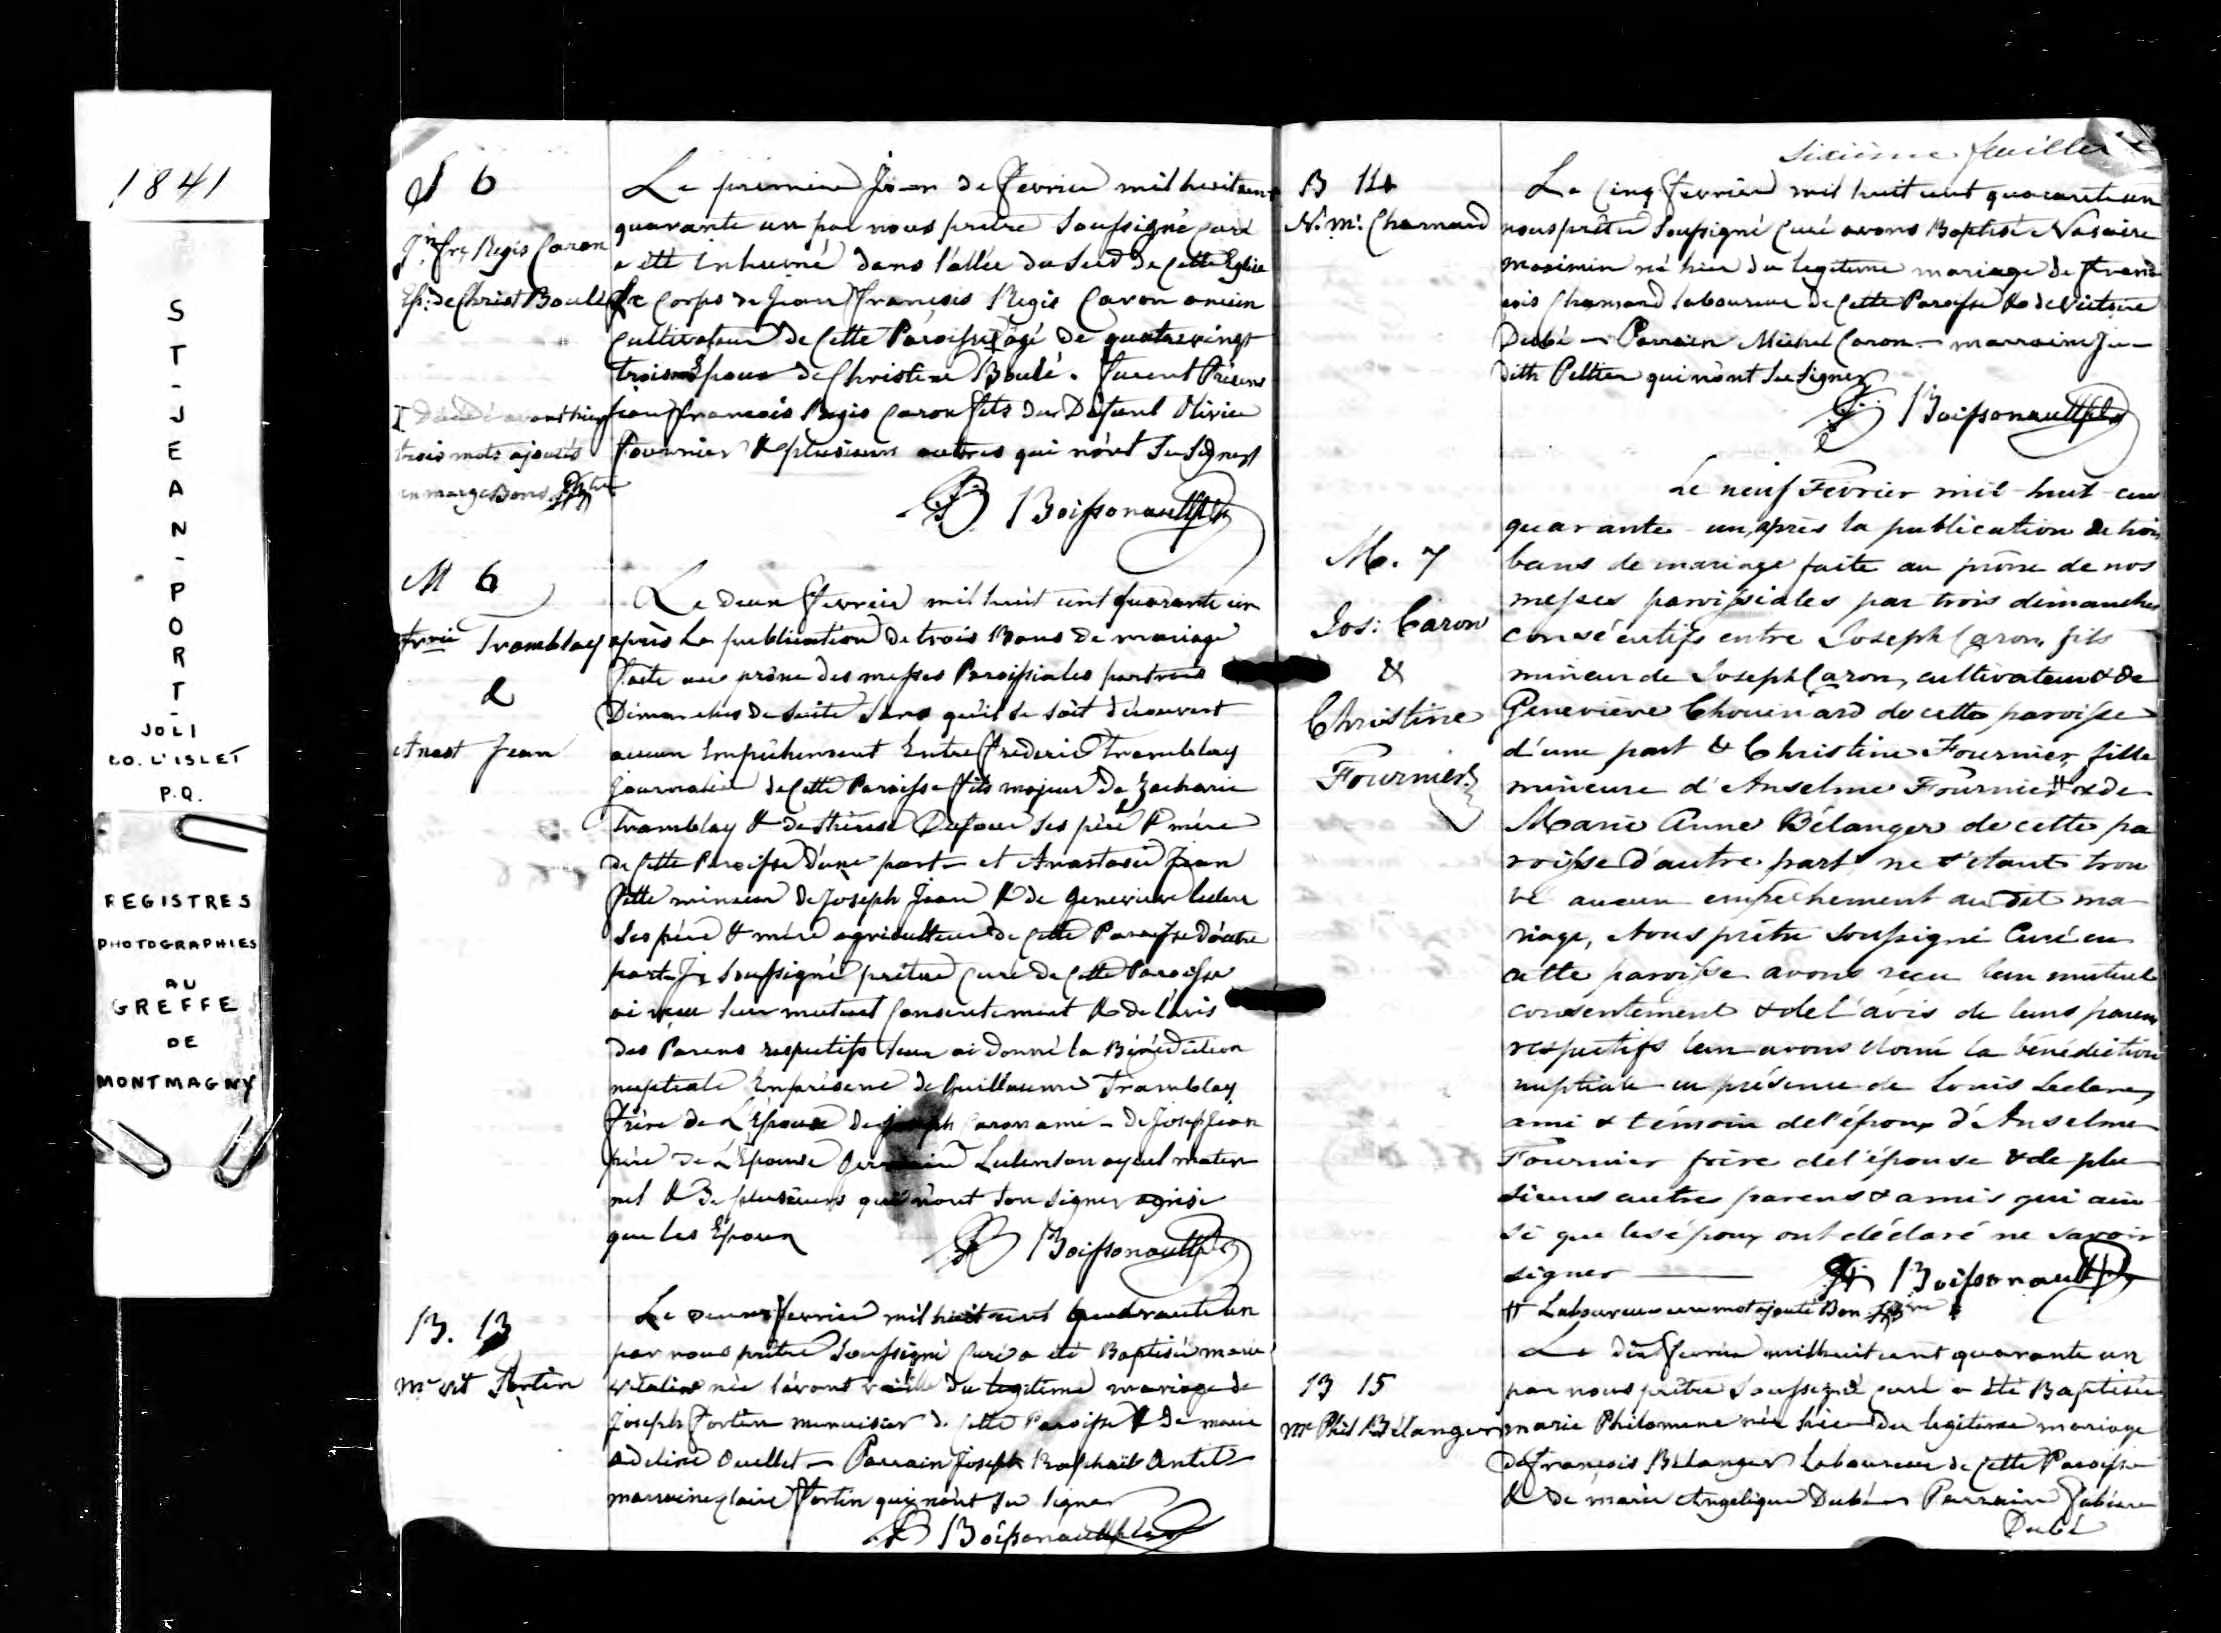 1841
S
T
-
J
E
A
N
-
P
O
R
T
-
JOLI
CO. L'ISLET
P.Q.
REGISTRES
PHOTOGRAPHIES
AU
GREFFE
DE
MONTMAGNY
S 6
Jn frs Regis Caron
Ep: de Christ Boulé
trois mots ajoutés
en marge Bons
Le premier Jour de fevrier mil huit cent
quarante un par nous prêtre Soussigné Curé
a été inhumé dans l'allée du Sud de cette Eglise
le Corps de Jean François Regis Caron ancien
Cultivateur de Cette Paroisse âgé de quatrevingt
trois Epoux de Christine Boulé. furent Présens
Jean francois Regis Caron fils du Defunt Olivier
Fournier & plusieurs autres qui n'ont Su Signer
Boissonnault ptre
M 6
Trembley
&
Anast Jean
Le deux fevrier mil huit cent quarante un
après la publication de trois Bans de mariage
faite au prône des messes Paroissiales par trois
Dimanches de Suite Sans qu'il se soit découvert
aucun Empêchement Entre frederic Tremblay
Journalier de Cette Paroisse fils majeur de Zacharie
Tramblay & de thérese Dufour Ses père & mère
de Cette Paroisse d'une part et Anastasie Jean
fille mineur de Joseph Jean & de Genevieve leclerc
Ses père & mère agriculteur de Cette Paroisse d'autre
part Je Soussigné prêtre Curé de Cette Paroisse
ai reçu leur mutuel Consentement & de l'avis
des Parens respectifs leur ai donné la Bénédiction
nuptiale En présence de Guillaume Tramblay
frère de L'Epoux de Joseph Caron ami - de Joseph Jean
père de L'Epouse ayeul mater
nel & de plusieurs qui n'ont Su Signer
que les Epoux
Boissonnault ptre
B. 13
Me vit Fortin
Le deux fevrier mil huit cent quarante un
par nous prêtre Soussigné Curé a été Baptisée marie
vitaline née l'avant veille du legitime mariage de
Joseph Fortin menuisier de Cette Paroisse & de marie
adeline Ouellet - Parrain Joseph Raphaël
marraine Claire Fortin qui n'ont Su Signer
Boissonnault ptre
Sixième feuillet
B 14
N. M. Chamard
Le Cinq fevrier mil huit cent quarante un
nous prêtre Soussigné Curé avons Baptisé Nasaire
Maximin né hier du legitime mariage de Fran
çois Chamard laboureur de Cette Paroisse & de Victoire
Dubé - Parrain Michel Caron - marraine Ju-
dith Peltier qui n'ont Su Signer
Boissonnault ptre
M. 7
Jos: Caron
&
Christine
Fournier
Le neuf Fevrier mil-huit-cent
quarante-un, après la publication de trois
bans de mariage faite au prône de nos
messes paroissiales par trois dimanches
consécutifs entre Joseph Caron, fils
mineur de Joseph Caron, cultivateur & de
Geneviève Chouinard de cette paroisse
d'une part & Christine Fournier, fille
mineure d'Anselme Fournier # & de
Marie Anne Bélanger de cette pa
roisse d'autre part ne s'étant trou
vé aucun empêchement au dit ma
riage, Nous prêtre soussigné Curé en
cette paroisse avons reçu leur mutuel
consentement & de l'avis de leurs parens
respectifs leur avons donné la bénédiction
nuptiale en présence de Louis Leclerc,
ami & témoin de l'époux d'Anselme
Fournier frère de l'épouse & de plu
sieurs autres parens & amis qui ain
si que les époux ont déclaré ne savoir
signer
Boissonnault ptre
# Laboureur un mot ajouté Bon
B 15
Me Phil Bélanger
Le dix fevrier mil huit cent quarante un
par nous prêtre Soussigné curé a été Baptisée
marie Philomene née hier du legitime mariage
de François Bélanger laboureur de Cette Paroisse
& de marie Angelique Dubé - Parrain Fabien
Dubé